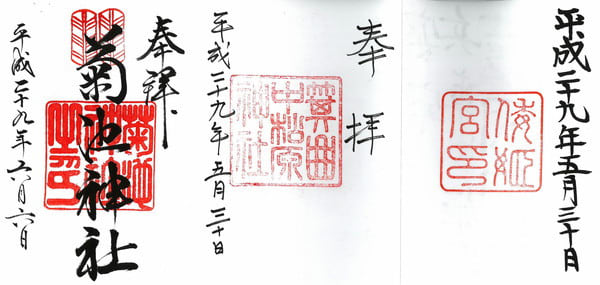 平成二十九年五月三十日
倭姫
宮印
奉拝
箕曲
中松原
神社
平成二十九年五月三十日
奉拝
菊池神社
平成二十九年六月六日